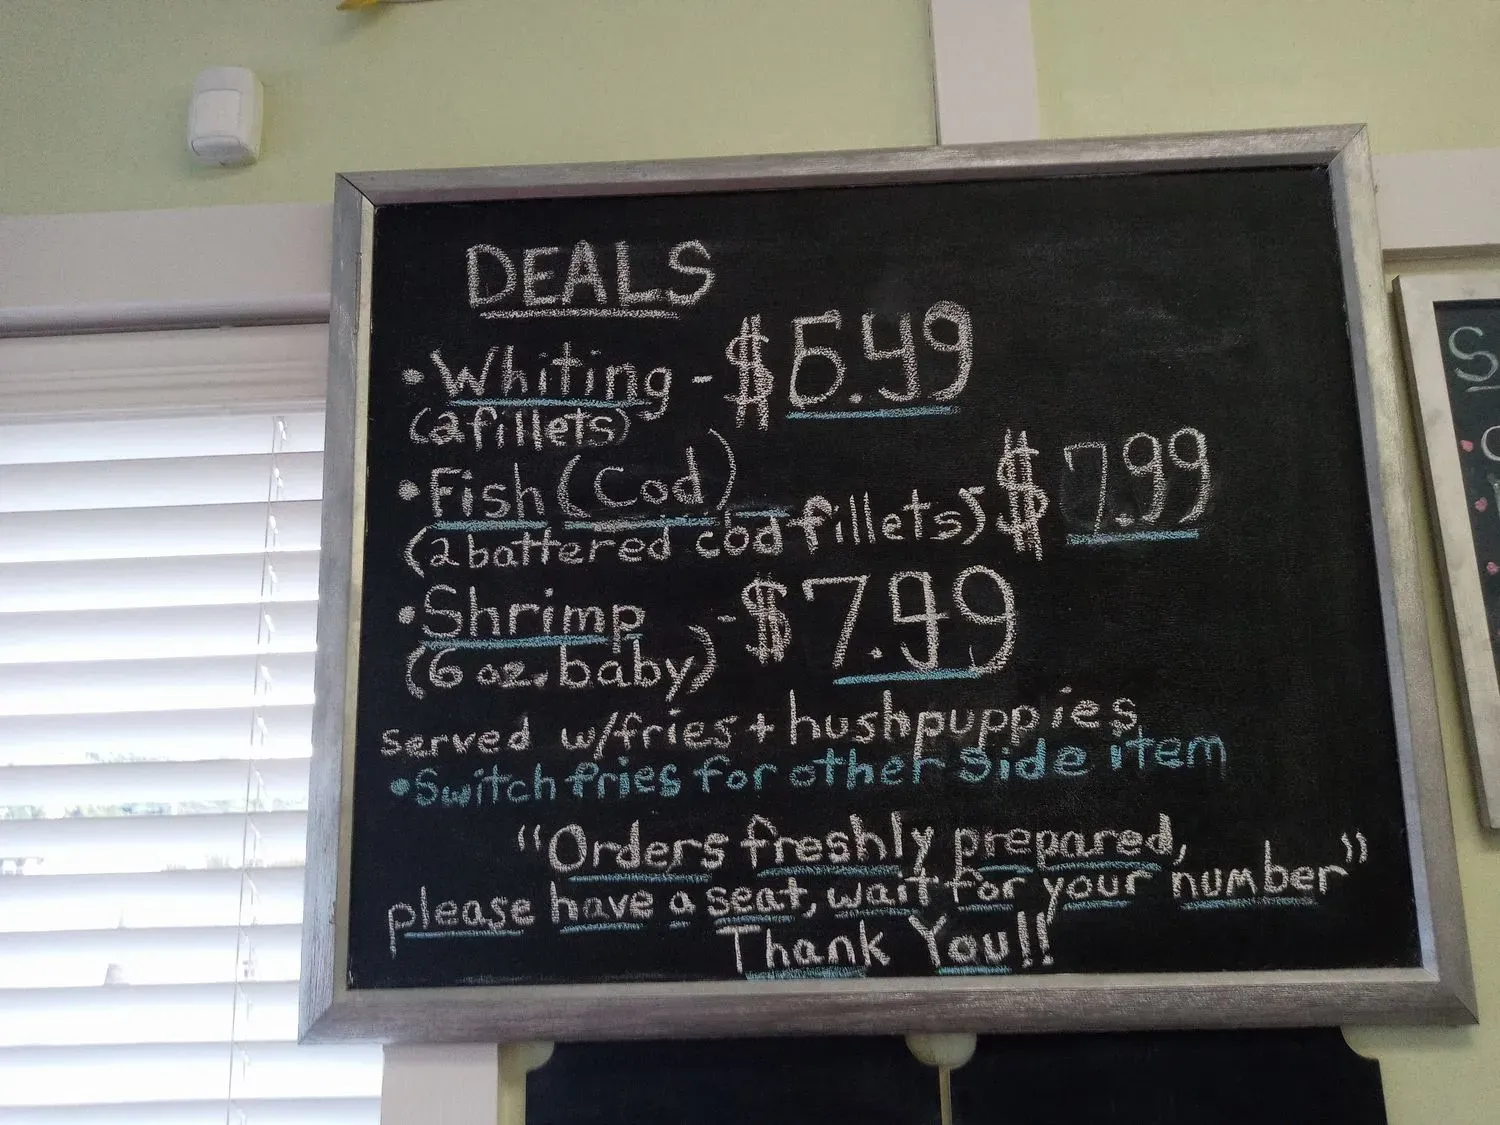 DEALS
• Whiting - $6.49
(2 fillets)
• Fish (Cod)
(2 battered cod fillets) $7.99
• Shrimp - $7.99
(6 oz. baby)
served w/fries + hushpuppies
• Switch fries for other side item
"Orders freshly prepared,
please have a seat, wait for your number"
Thank You!!